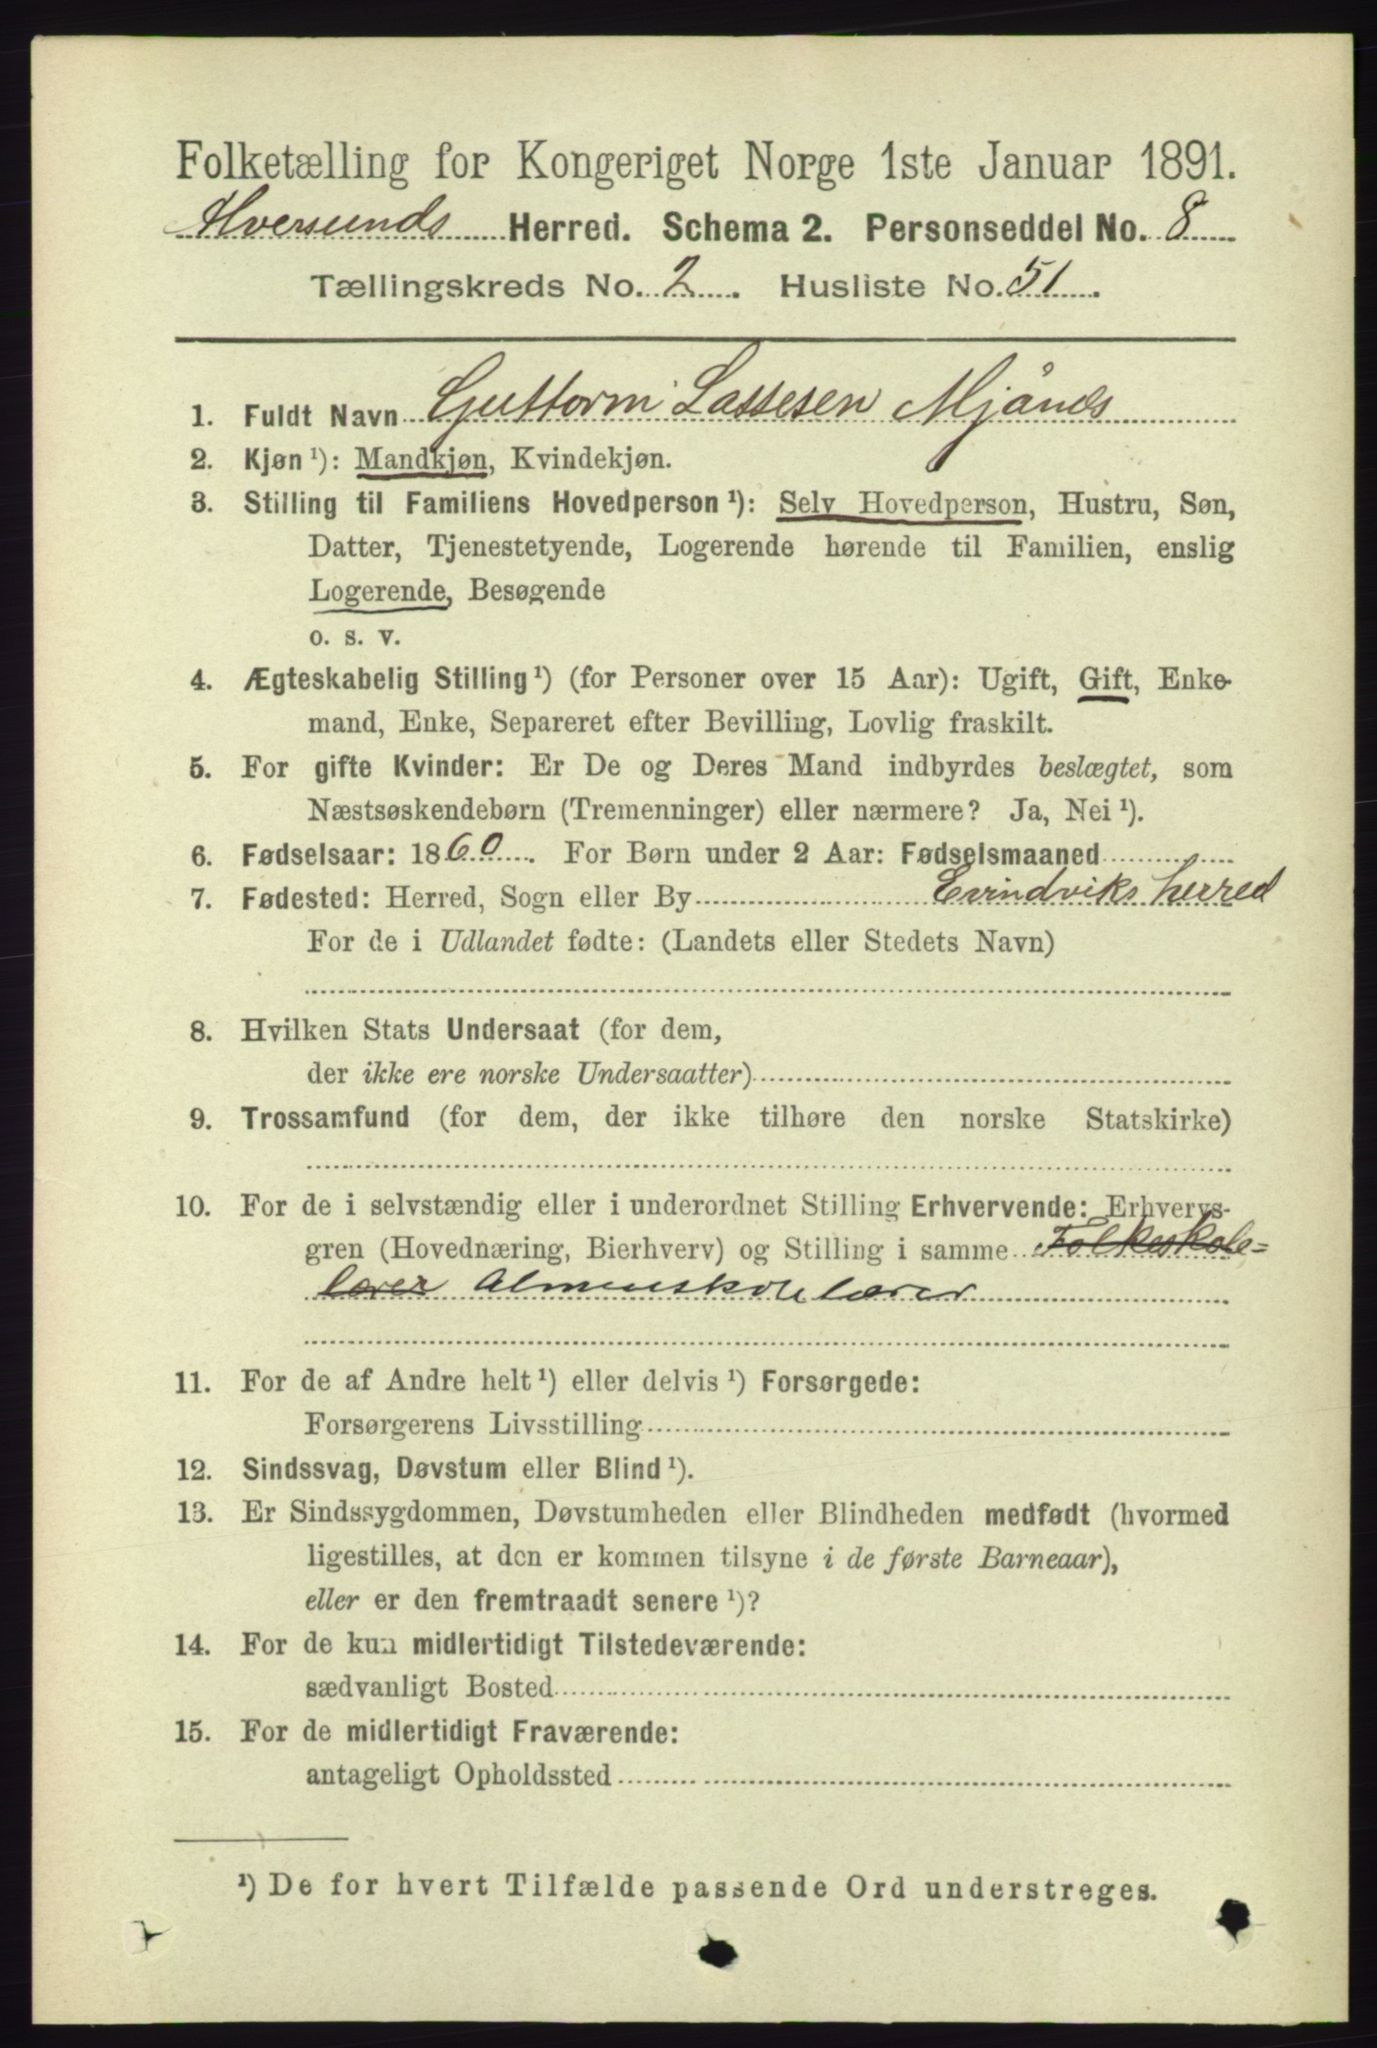 Folketælling for Kongeriget Norge 1ste Januar 1891.
Alversunds Herred. Schema 2. Personseddel No. 8
Tællingskreds No. 2. Husliste No. 51.
1. Fuldt Navn Guttorm Lassesen Mjånes
2. Kjøn ¹): Mandkjøn, Kvindekjøn.
3. Stilling til Familiens Hovedperson ¹): Selv Hovedperson, Hustru, Søn,
Datter, Tjenestetyende, Logerende hørende til Familien, enslig
Logerende, Besøgende
o. s. v.
4. Ægteskabelig Stilling ¹) (for Personer over 15 Aar): Ugift, Gift, Enke-
mand, Enke, Separeret efter Bevilling, Lovlig fraskilt.
5. For gifte Kvinder: Er De og Deres Mand indbyrdes beslægtet, som
Næstsøskendebørn (Tremenninger) eller nærmere? Ja, Nei ¹).
6. Fødselsaar: 1860. For Børn under 2 Aar: Fødselsmaaned
7. Fødested: Herred, Sogn eller By Evindviks herred
For de i Udlandet fødte: (Landets eller Stedets Navn)
8. Hvilken Stats Undersaat (for dem,
der ikke ere norske Undersaatter)
9. Trossamfund (for dem, der ikke tilhøre den norske Statskirke)
10. For de i selvstændig eller i underordnet Stilling Erhvervende: Erhvervs-
gren (Hovednæring, Bierhverv) og Stilling i samme Folkeskole-
lærer Almueskolelærer
11. For de af Andre helt ¹) eller delvis ¹) Forsørgede:
Forsørgerens Livsstilling
12. Sindssvag, Døvstum eller Blind ¹).
13. Er Sindssygdommen, Døvstumheden eller Blindheden medfødt (hvormed
ligestilles, at den er kommen tilsyne i de første Barneaar),
eller er den fremtraadt senere ¹)?
14. For de kun midlertidigt Tilstedeværende:
sædvanligt Bosted
15. For de midlertidigt Fraværende:
antageligt Opholdssted
¹) De for hvert Tilfælde passende Ord understreges.